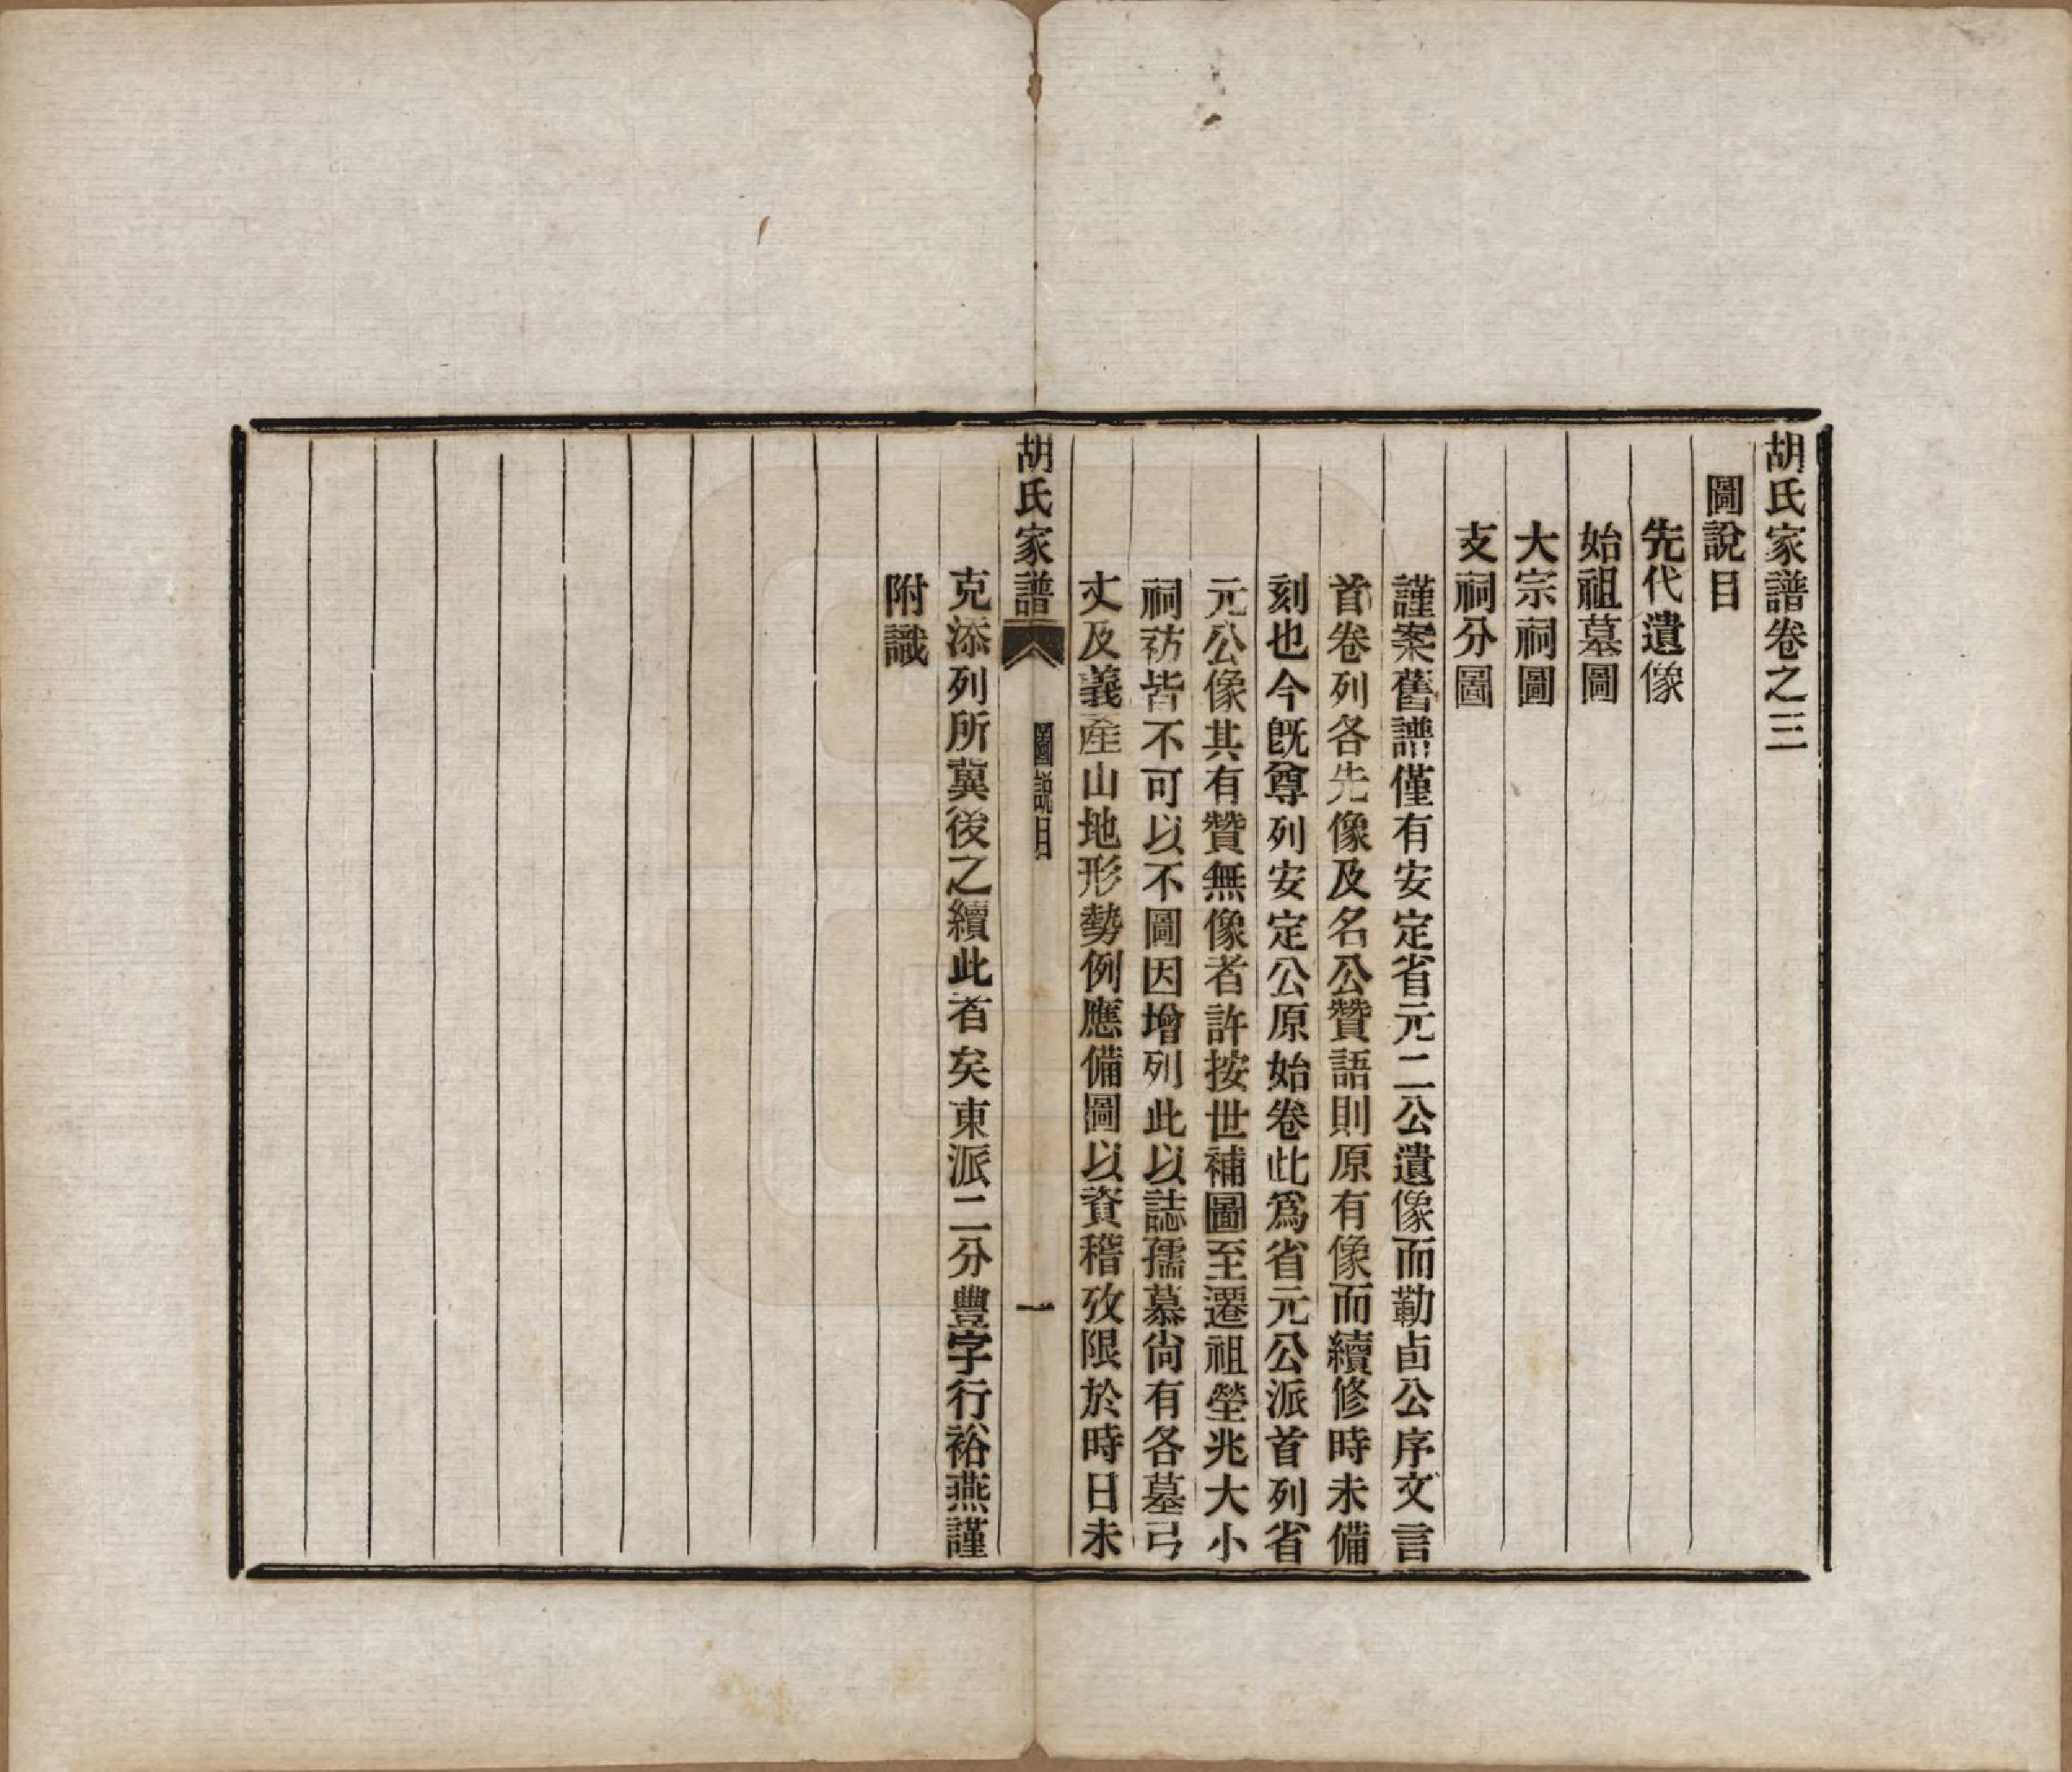 胡氏家譜卷之三
圖說目
先代遺像
始祖墓圖
大宗祠圖
支祠分圖
謹案舊譜僅有安定省元二公遺像而勒卣公序文言
首卷列各先像及名公贊語則原有像而續修時未備
刻也今既尊列安定公原始卷此爲省元公派首列省
元公像其有贊無像者許按世補圖至遷祖塋兆大小
祠祊皆不可以不圖因增列此以誌孺慕尙有各墓弓
丈及義產山地形勢例應備圖以資稽攷限於時日未
胡氏家譜 圖說目 一
克添列所冀後之續此者矣東派二分豐字行裕燕謹
附識